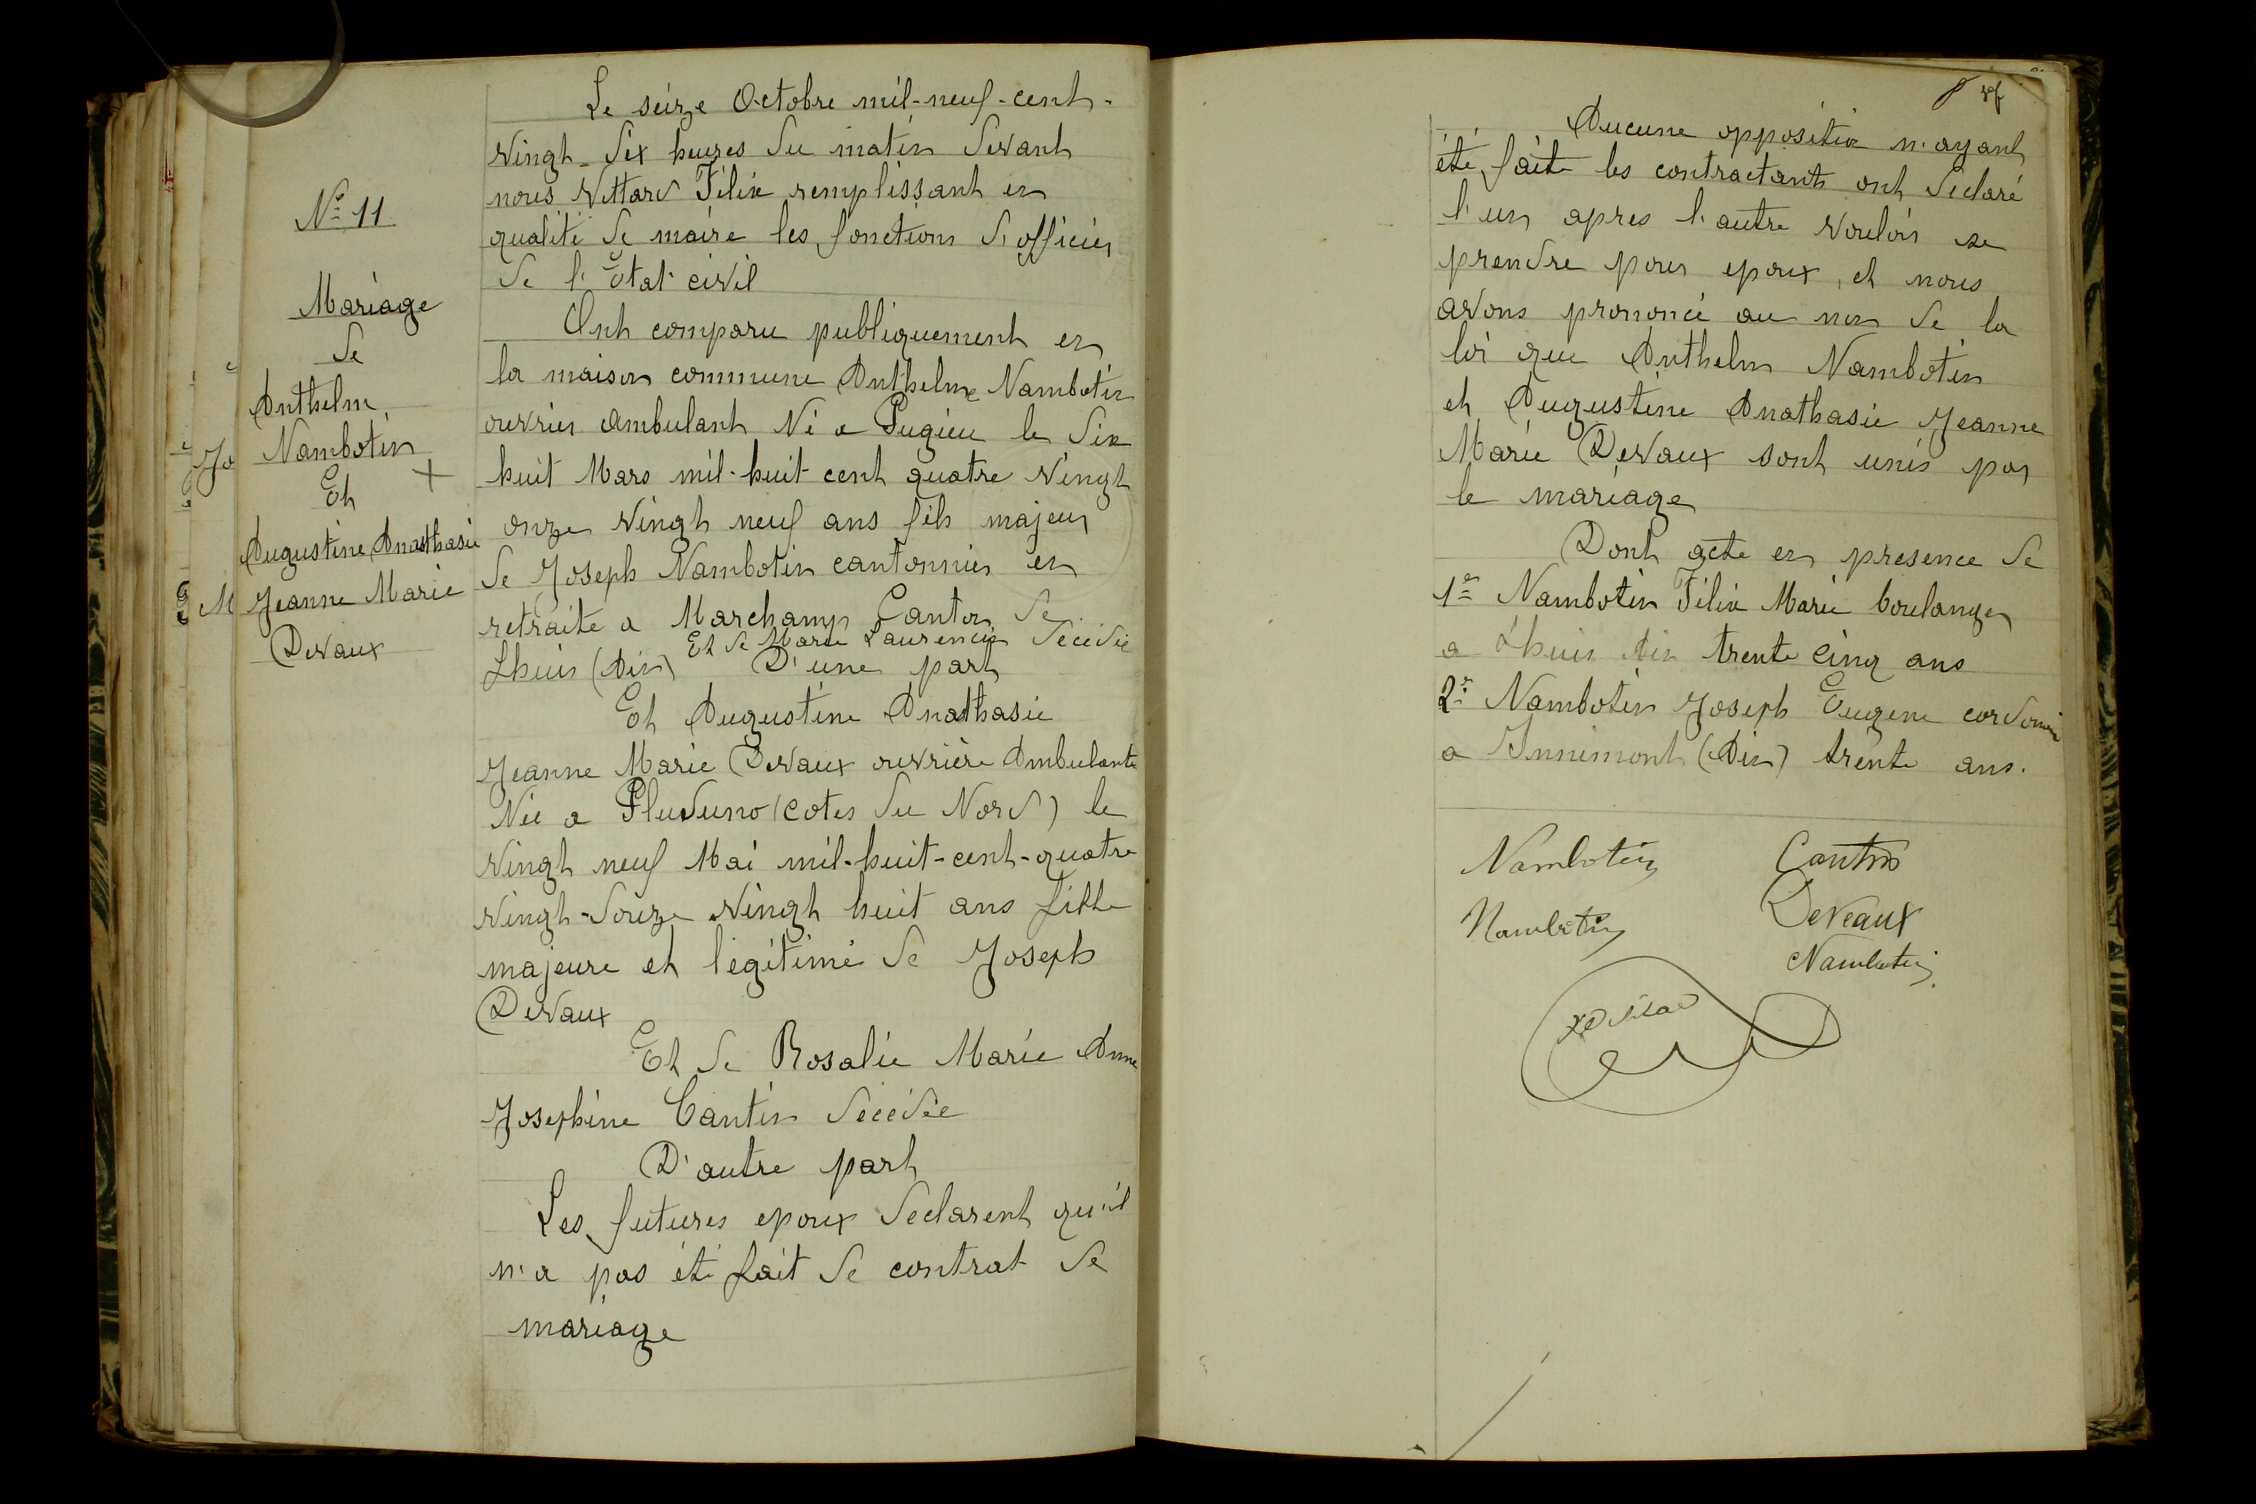 Nº 11
Mariage
de
Anthelm
Nambotin
Et +
Augustine Anasthasie
Jeanne Marie
Devaux
Le seize Octobre mil-neuf-cent-
vingt dix heures du matin devant
nous Vettard Félix remplissant en
qualité de maire les fonctions d'officier
de l'Etat civil
Ont comparu publiquement en
la maison commune Anthelme Nambotin
ouvrier Ambulant Né a Pugieu le dix
huit Mars mil-huit cent quatre vingt
onze vingt neuf ans fils majeur
de Joseph Nambotin cantonnier en
retraite a Marchamp Canton de
Et de Marie Laurencin décédée
Lhuis (Ain) D'une part
Et Augustine Anasthasie
Jeanne Marie Devaux ouvrière Ambulante
Née a Pluduno (cotes du Nord) le
vingt neuf Mai mil-huit-cent-quatre
vingt-douze vingt huit ans fille
majeure et légitime de Joseph
Devaux
Et de Rosalie Marie Anne
Josephine Cantin décédée
D'autre part
Les futures epoux declarent qu'il
n'a pas été fait de contrat de
mariage
8
Aucune opposition n'ayant
été faite les contractants ont déclaré
l'un apres l'autre vouloir se
prendre pour epoux, et nous
avons prononcé au nom de la
loi que Anthelm Nambotin
et Augustine Anathasie Jeanne
Marie Devaux sont unis par
le mariage
Dont acte en presence de
1er Nambotin Félix Marie boulanger
a Lhuis Ain trente cinq ans
2e Nambotin Joseph Eugene cordonnier
a Innimont (Ain) trente ans.
Nambotin
Nambotin
Deveaux
Nambotin